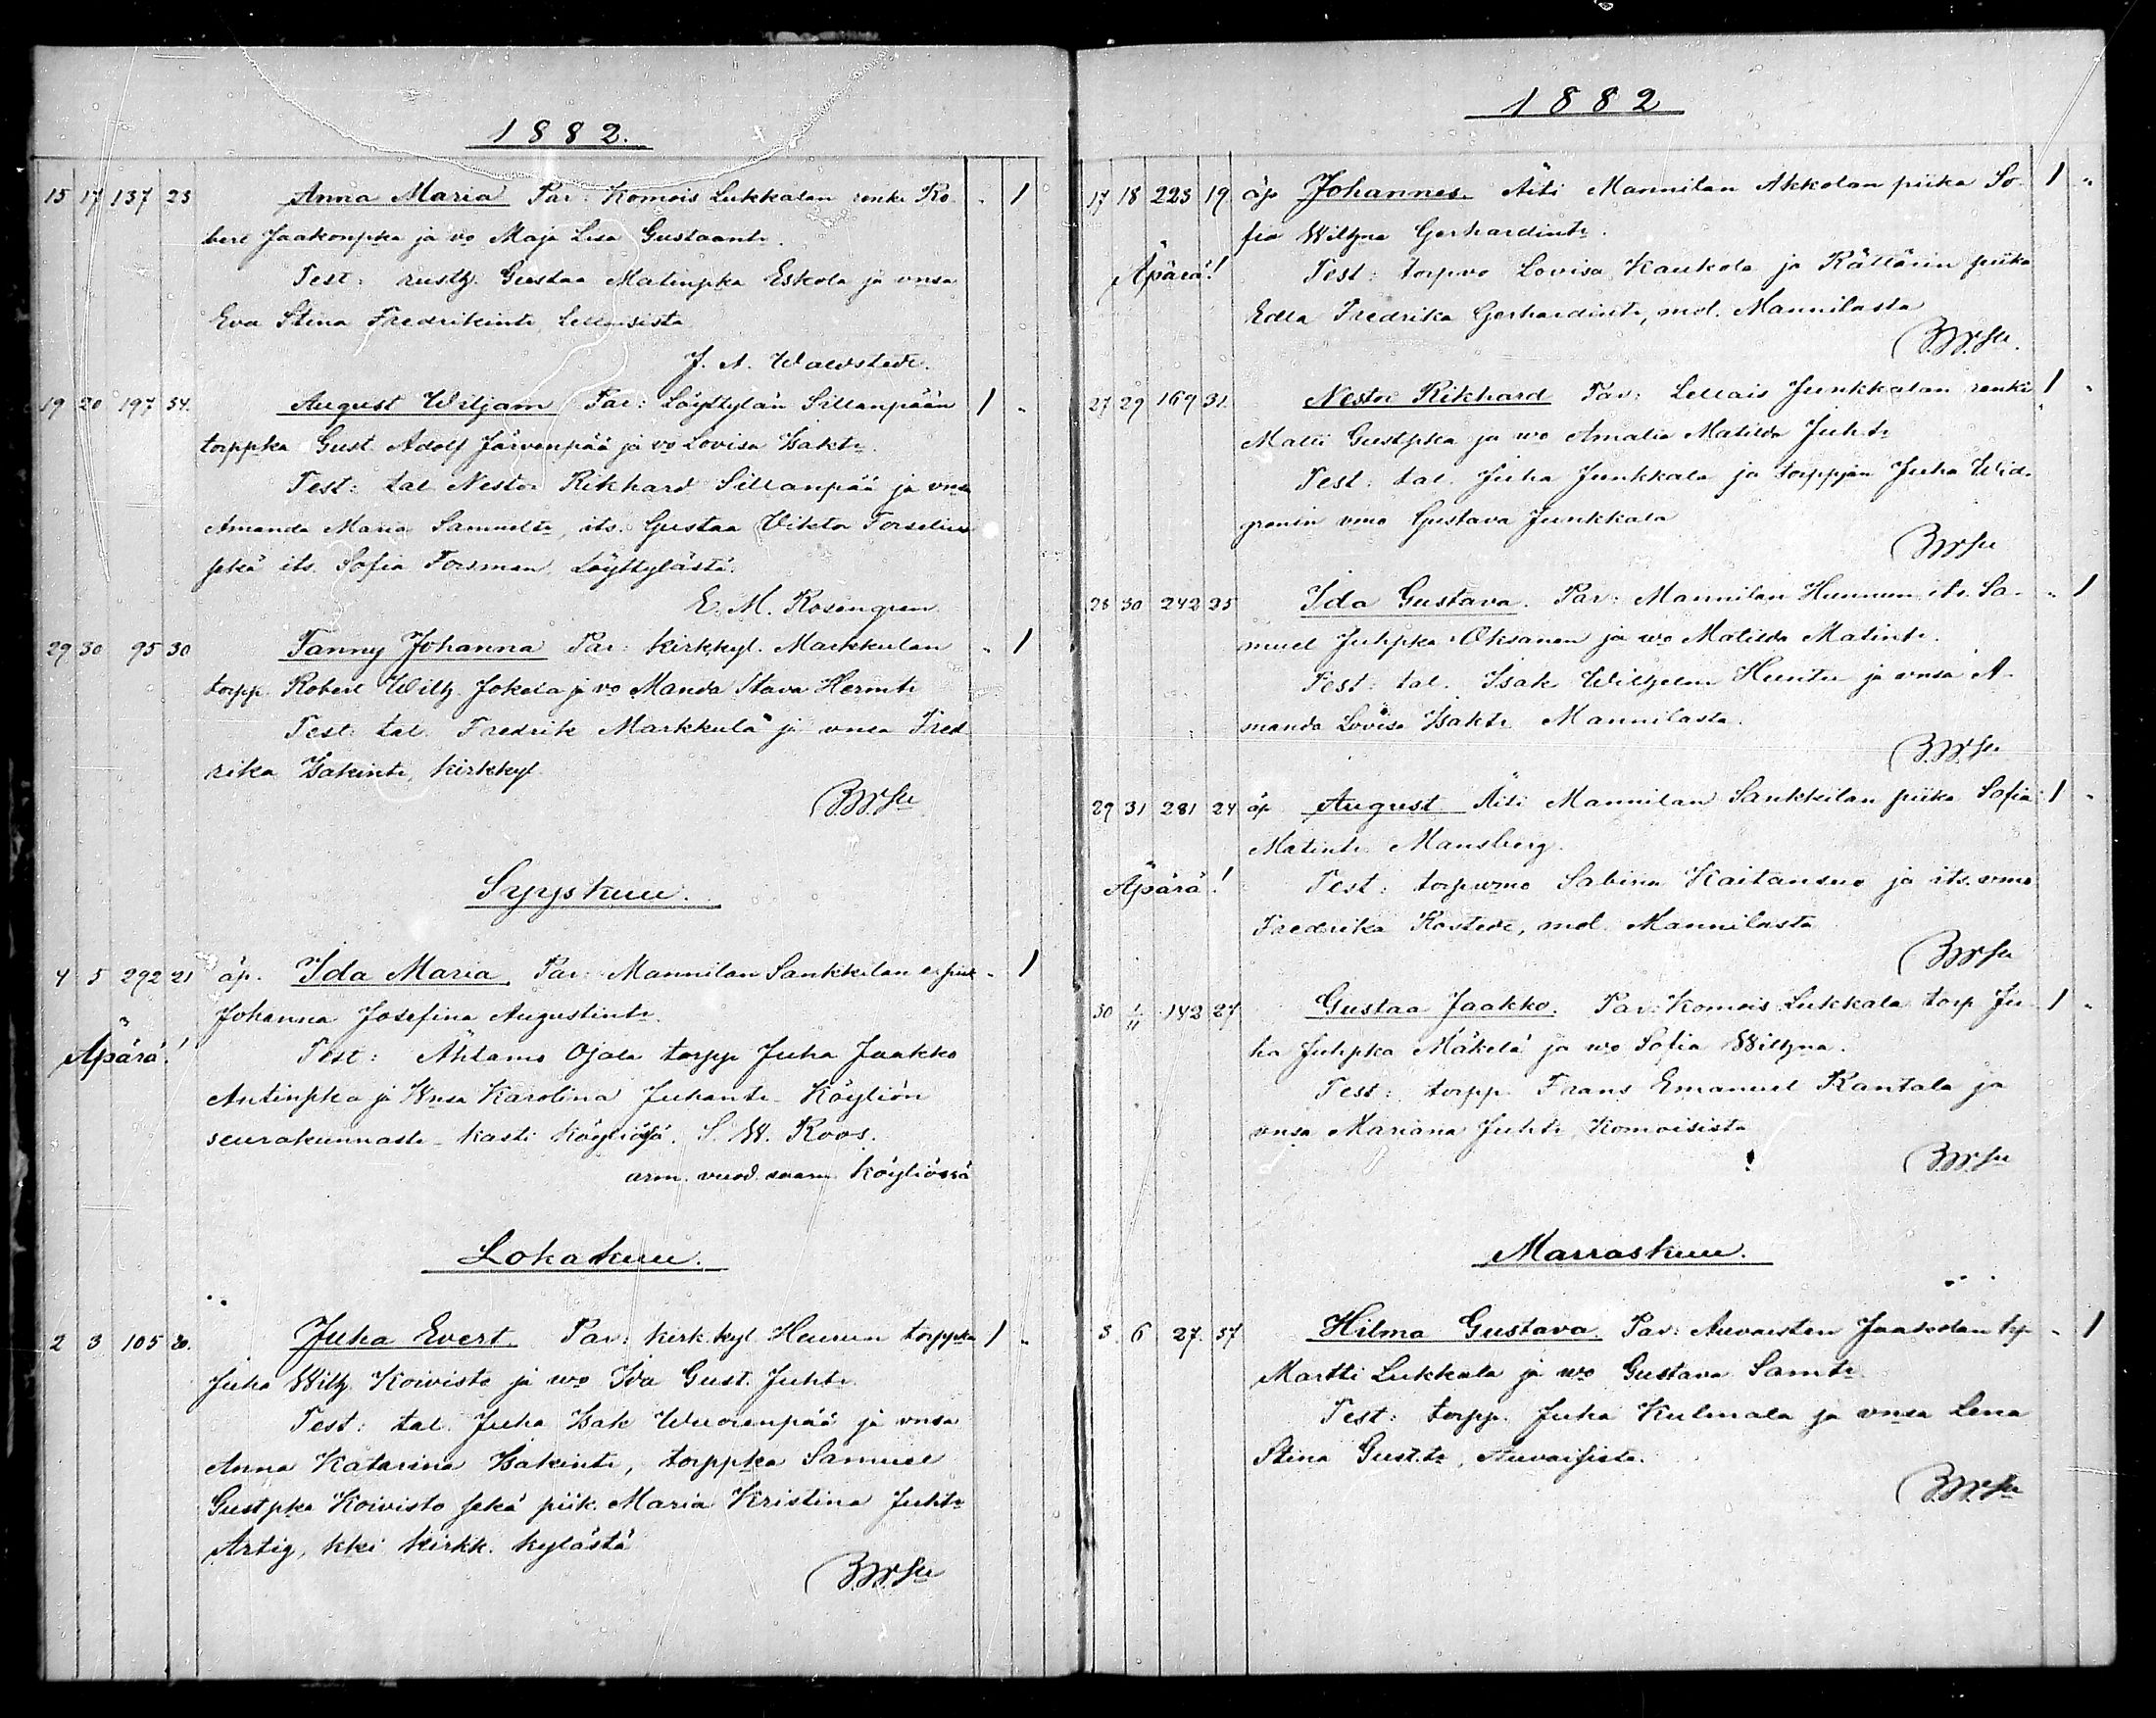 1882.
15 17 137 23 Anna Maria Par: Komois Lukkalan renki Ro- " 1
bert Jaakonpka ja vo Maja Lisa Gustaantr.
Test: rusth. Gustaa Matinpka Eskola ja vnsa
Eva Stina Fredrikintr, Lellaisista
J. A. Waldstedt.
19 20 197 34. August Wiljam Par: Löyttylän Sillanpään 1 "
torppka Gust. Adolf Järvenpää ja vo Lovisa Isaktr.
Test: tal. Nestor Rikhard Sillanpää ja vnsa
Amanda Maria Samueltr, its. Gustaa Viktor Forselius
sekä its. Sofia Forsman, Löyttylästä.
E. M. Rosengren
29 30 95 30 Fanny Johanna Par: kirkkyl. Markkulan " 1
torpp. Robert Wilh. Jokela ja vo Manda Stava Hermtr
Test: tal. Fredrik Markkula ja vnsa Fred
rika Isakintr, kirkkyl.
Syyskuu.
4 5 292 21 äp. Ida Maria, Par: Mannilan Sankkilan " 1
Johanna Josefina Augustintr.
Äpärä! Test: Ähtamo Ojala torpp Juha Jaakko
Antinpka ja Vnsa Karolina Juhantr - Köyliön
seurakunnasta - kasti Köyliössä. S. W. Roos.
arm. vuod. saarn. Köyliössä
Lokakuu.
2 3 105 30. Juha Evert. Par: kirk.kyl. Hunnun torppka 1 "
Juha Wilh. Koivisto ja wo Ida Gust. Juhtr.
Test: tal. Juha Isak Wuorenpää ja vnsa
Anna Katarina Isakintr, torppka Samuel
Gustpka Koivisto sekä piik. Maria Kristina Juhtr
Artig, kki kirkk. kylästä
1882
17 18 223 19 äp Johannes. Äiti Mannilan Akkolan piika So- 1 "
fia Wilhna Gerhardintr.
Äpärä! Test: torpvo Lovisa Kaukola ja Rättärin piika
Edla Fredrika Gerhardintr, mol. Mannilasta
27 29 169 31. Nestor Rikhard Par: Lellais Junkkalan renki 1 "
Matti Gustpka ja wo Amalia Matilda Juhtr
Test: tal. Juha Junkkala ja torppjan Juha Wid-
grenin vmo Gustava Junkkala
28 30 242 25 Ida Gustava. Par: Mannilan Hunnun its. Sa- " 1
muel Juhpka Oksanen ja wo Matilda Matintr.
Test: tal. Isak Wilhelm Huntu ja vnsa A-
manda Lovisa Isaktr Mannilasta.
29 31 281 24 äp August Äiti Mannilan Sankkilan piika Sofia 1 "
Matintr Mansberg.
Äpärä! Test: torpvmo Sabina Kaitansuo ja its. vmo
Fredrika Kostedt, mol. Mannilasta
30 1/11 142 27 Gustaa Jaakko. Par: Komois Lukkala torp Ju- 1 "
ha Juhpka Mäkelä ja wo Sofia Wilhna.
Test: torpp. Frans Emanuel Rantala ja
vnsa Mariana Juhtr, Komoisista
Marraskuu.
5. 6 27. 37 Hilma Gustava. Par: Auvaisten Jaakolan trp " 1
Martti Lukkala ja wo Gustava Samtr.
Test: torpp. Juha Kulmala ja vnsa Lena
Stina Gust.tr, Auvaisista.